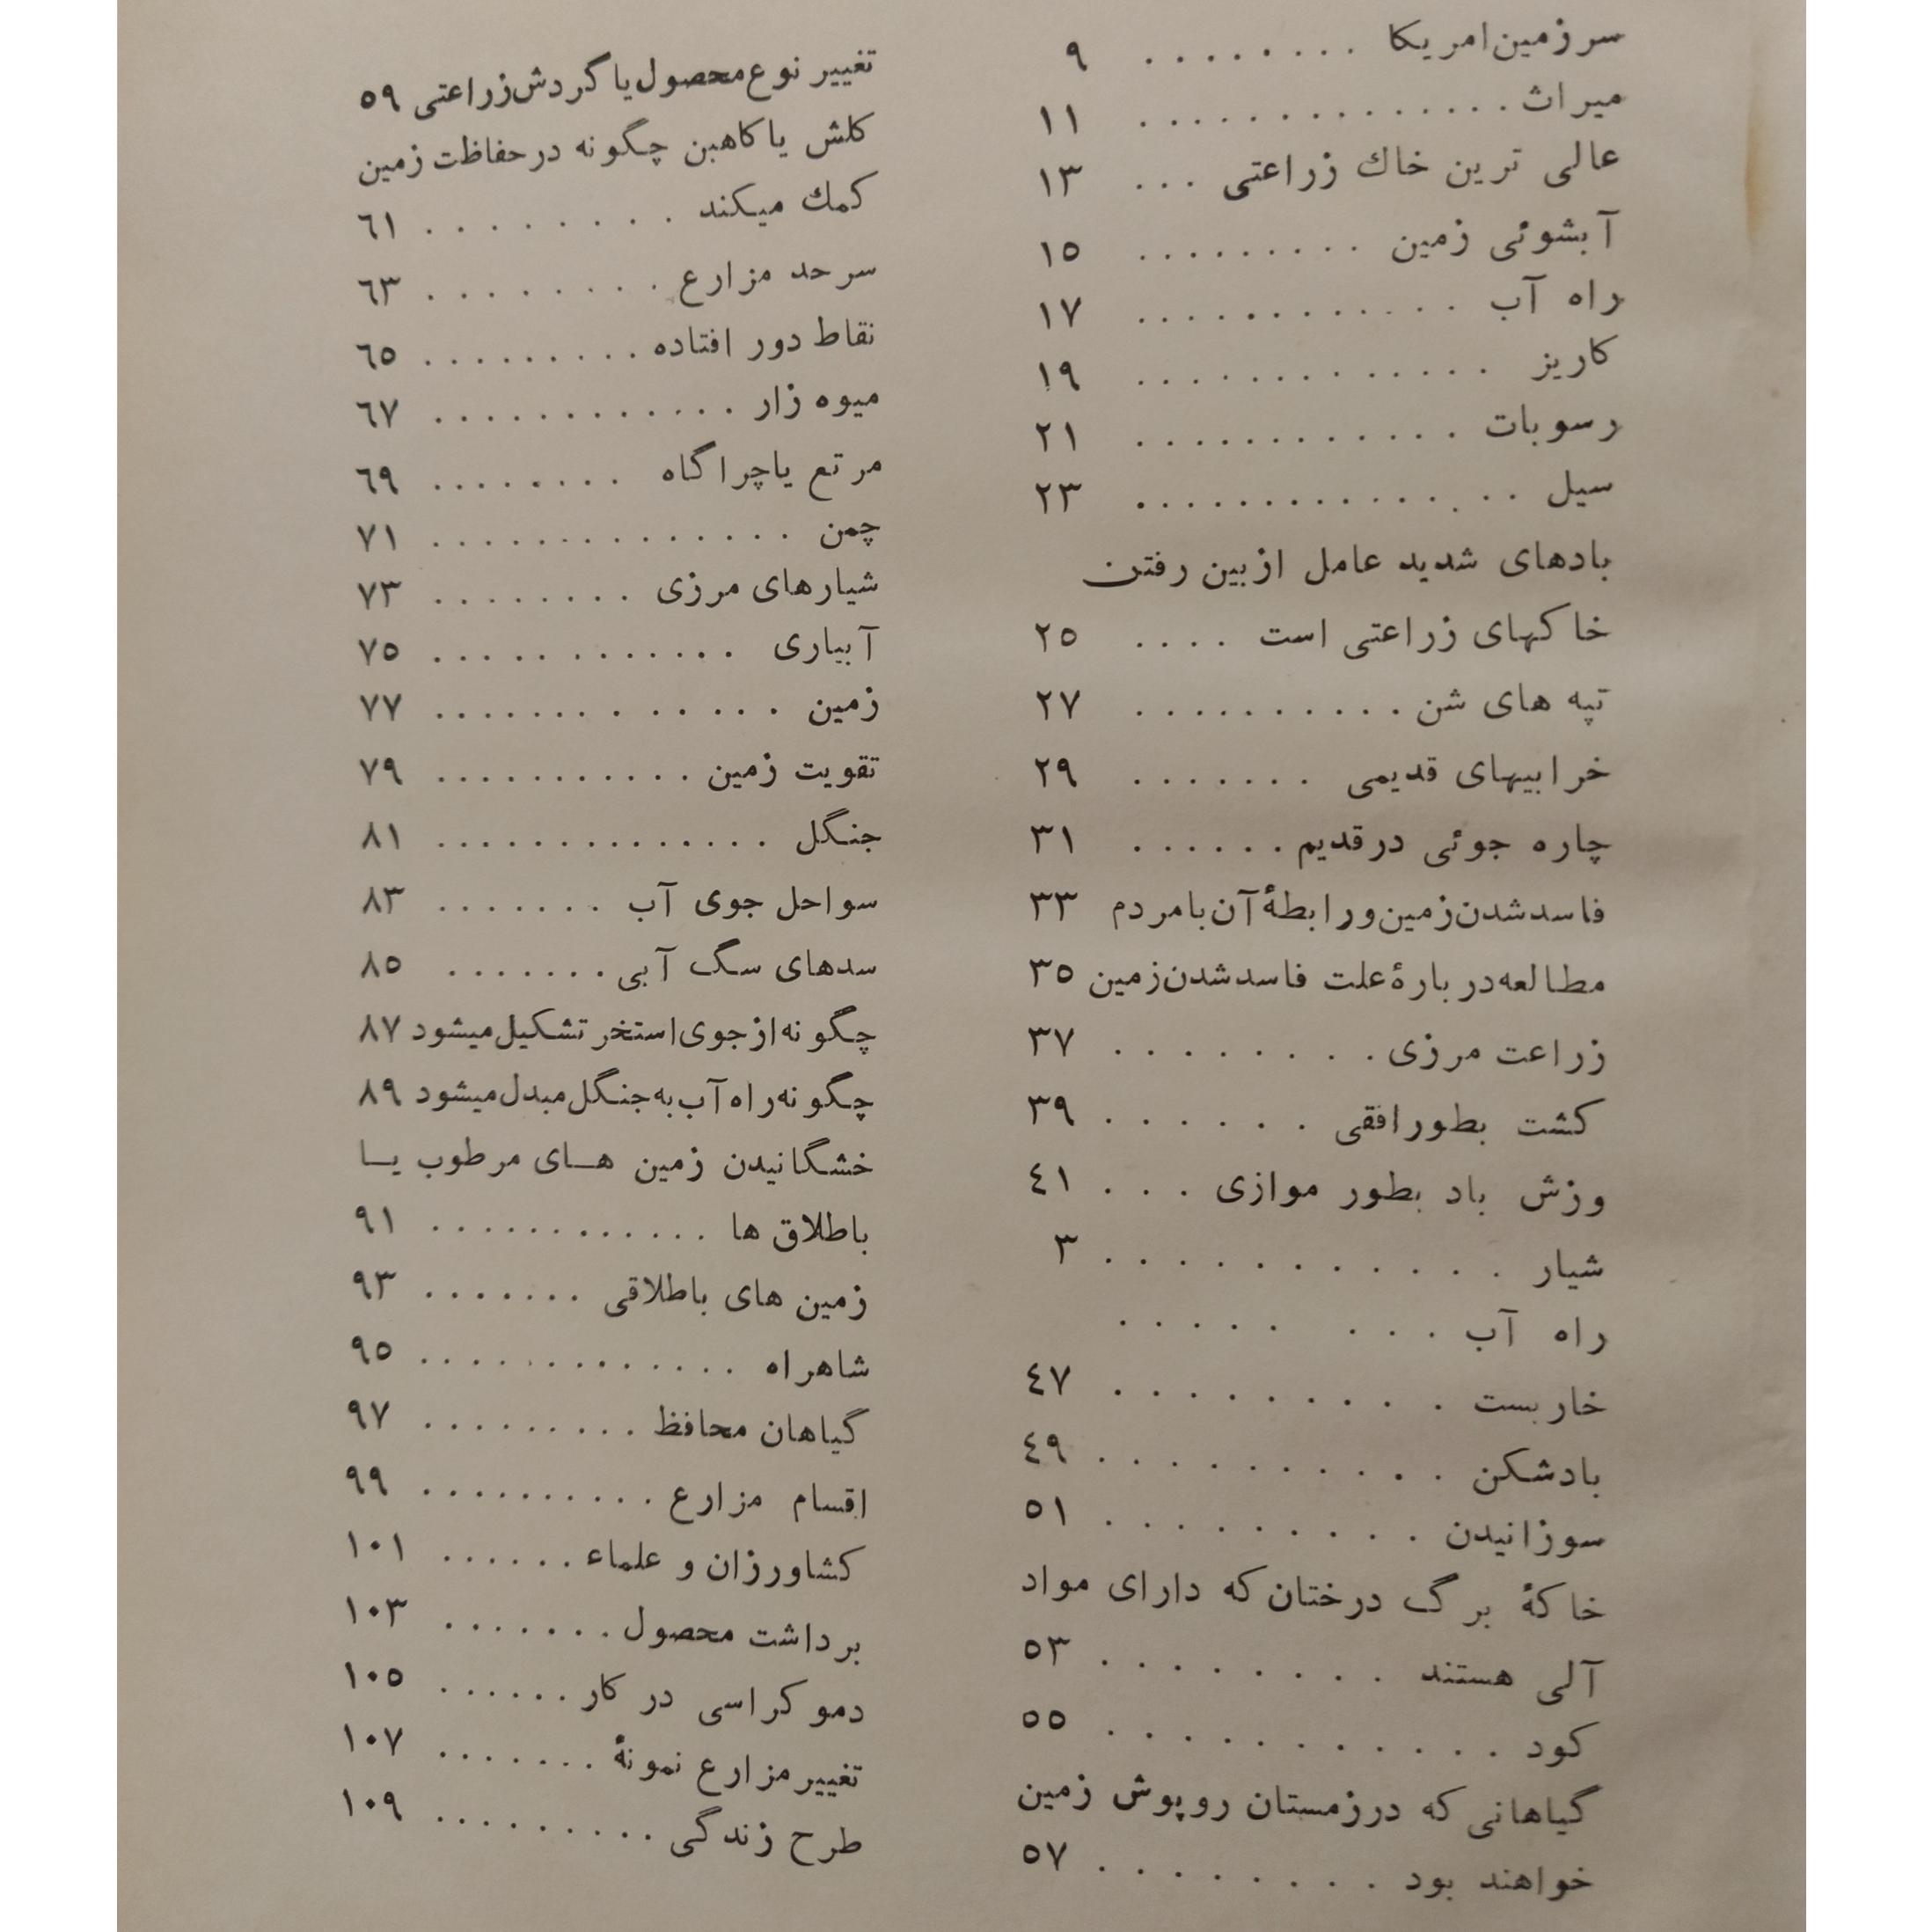 سرزمین امریکا ........ ۹
میراث .............. ۱۱
عالی ترین خاك زراعتی ... ۱۳
آبشوئی زمین ......... ۱۵
راه آب ............ ۱۷
کاریز ............. ۱۹
رسوبات ............ ۲۱
سیل .............. ۲۳
بادهای شدید عامل ازبین رفتن
خاکهای زراعتی است .... ۲۵
تپه های شن .......... ۲۷
خرابیهای قدیمی ....... ۲۹
چاره جوئی درقدیم ...... ۳۱
فاسدشدن زمین ورابطۀ آن بامردم ۳۳
مطالعه دربارۀ علت فاسدشدن زمین ۳۵
زراعت مرزی ........ ۳۷
کشت بطورافقی ...... ۳۹
وزش باد بطور موازی ... ٤۱
شیار ........... ۳
راه آب ... .....
خاربست ......... ٤۷
بادشکن .......... ٤۹
سوزانیدن ......... ۵۱
خاکۀ برگ درختان که دارای مواد
آلی هستند ........ ۵۳
کود ........... ۵۵
گیاهانی که درزمستان روپوش زمین
خواهند بود ........ ۵۷
تغییر نوع محصول یا گردش زراعتی ۵۹
کلش یا کاهبن چگونه درحفاظت زمین
کمك میکند ........ ٦۱
سرحد مزارع ........ ٦۳
نقاط دور افتاده ......... ٦۵
میوه زار ............ ٦۷
مرتع یاچراگاه ........ ٦۹
چمن .............. ۷۱
شیارهای مرزی ........ ۷۳
آبیاری ............ ۷۵
زمین ............. ۷۷
تقویت زمین ........... ۷۹
جنگل .............. ۸۱
سواحل جوی آب ....... ۸۳
سدهای سگ آبی ....... ۸۵
چگونه ازجوی استخر تشکیل میشود ۸۷
چگونه راه آب به جنگل مبدل میشود ۸۹
خشگانیدن زمین هـای مرطوب یـا
باطلاق ها ............ ۹۱
زمین های باطلاقی ....... ۹۳
شاهراه ............. ۹۵
گیاهان محافظ ......... ۹۷
اقسام مزارع .......... ۹۹
کشاورزان و علماء ...... ۱۰۱
برداشت محصول ....... ۱۰۳
دموکراسی در کار ...... ۱۰۵
تغییرمزارع نمونۀ ....... ۱۰۷
طرح زندگی ......... ۱۰۹